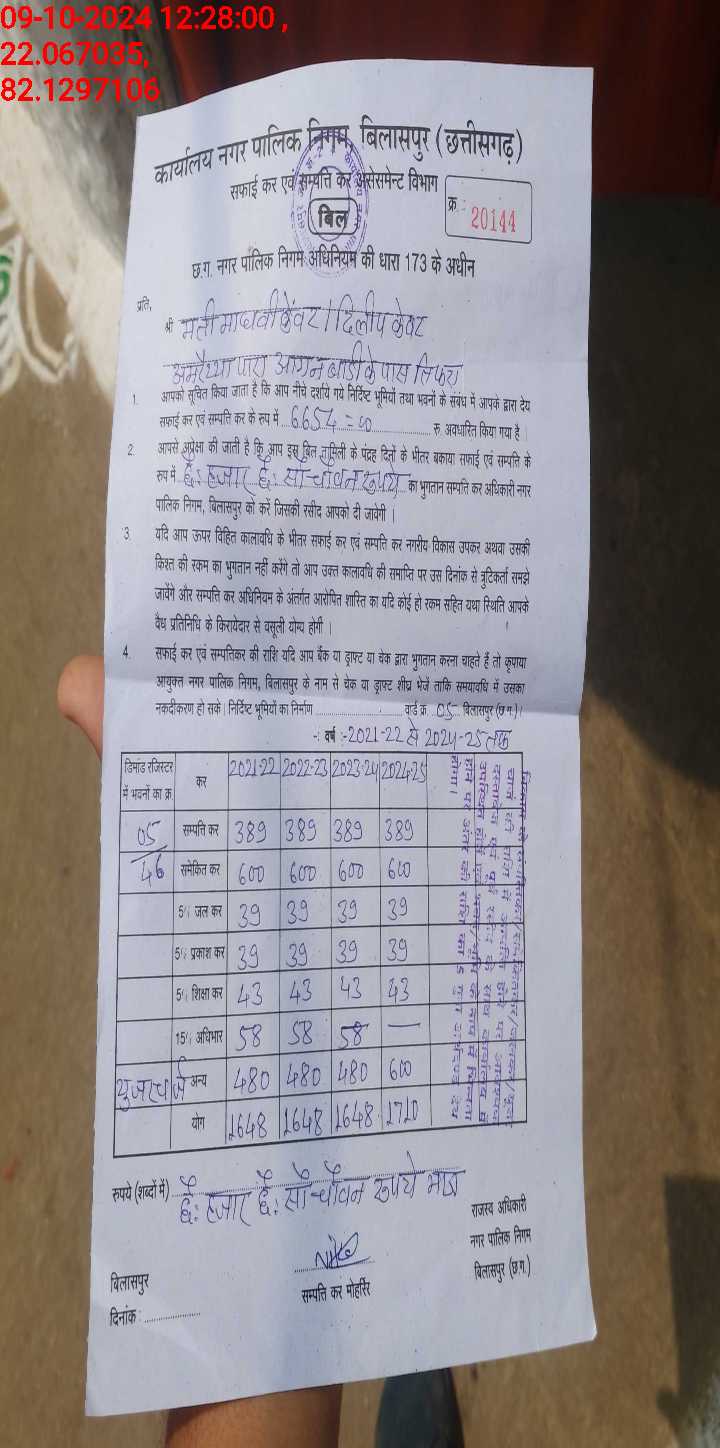 09-10-2024 12:28:00 ,
22.067035,
82.1297106
कार्यालय नगर पालिक निगम, बिलासपुर (छत्तीसगढ़)
सफाई कर एवं सम्पत्ति कर असेसमेन्ट विभाग
बिल
क्र : 20144
छ.ग. नगर पालिक निगम अधिनियम की धारा 173 के अधीन
प्रति,
श्री मती माधवी केंवट / दिलीप केवट
अमरैय्या पारा आगन बाडी के पास तिफरा
1. आपको सूचित किया जाता है कि आप नीचे दर्शाये गये निर्दिष्ट भूमियों तथा भवनों के संबंध में आपके द्वारा देय
सफाई कर एवं सम्पति कर के रुप में 6654=00 रु. अवधारित किया गया है
2. आपसे अपेक्षा की जाती है कि आप इस बिल तामिली के पंद्रह दिनों के भीतर बकाया सफाई एवं सम्पति के
रुप में छै: हजार छै: सौ चौवन रुपये का भुगतान सम्पति कर अधिकारी नगर
पालिक निगम, बिलासपुर को करें जिसकी रसीद आपको दी जावेगी |
3. यदि आप ऊपर विहित कालावधि के भीतर सफाई कर एवं सम्पति कर नगरीय विकास उपकर अथवा उसकी
किश्त की रकम का भुगतान नहीं करेंगे तो आप उक्त कालावधि की समाप्ति पर उस दिनांक से त्रुटिकर्ता समझे
जावेंगे और सम्पति कर अधिनियम के अंतर्गत आरोपित शास्ति का यदि कोई हो रकम सहित यथा स्थिति आपके
वैध प्रतिनिधि के किरायेदार से वसूली योग्य होगी |
4. सफाई कर एवं सम्पत्तिकर की राशि यदि आप बैंक या ड्राफ्ट या चेक द्वारा भुगतान करना चाहते हैं तो कृपाया
आयुक्त नगर पालिक निगम, बिलासपुर के नाम से चेक या ड्राफ्ट शीघ्र भेजें ताकि समयावधि में उसका
नकदीकरण हो सके | निर्दिष्ट भूमियों का निर्माण वार्ड क्र. 05 बिलासपुर (छ.ग.) |
-: वर्ष :-2021-22 से 2024-25 तक
डिमांड रजिस्टर में भवनों का क्र. कर 2021-22 2022-23 2023-24 2024-25
05 सम्पत्ति कर 389 389 389 389
46 समेकित कर 600 600 600 600
5% जल कर 39 39 39 39
5% प्रकाश कर 39 39 39 39
5% शिक्षा कर 43 43 43 43
15% अधिभार 58 58 58 —
यूजरचार्ज अन्य 480 480 480 600
योग 1648 1648 1648 1710
रुपये (शब्दों में) छै: हजार छै: सौ चौवन रुपये मात्र
राजस्व अधिकारी
नगर पालिक निगम
बिलासपुर (छ.ग.)
सम्पत्ति कर मोहर्रिर
बिलासपुर
दिनांक :